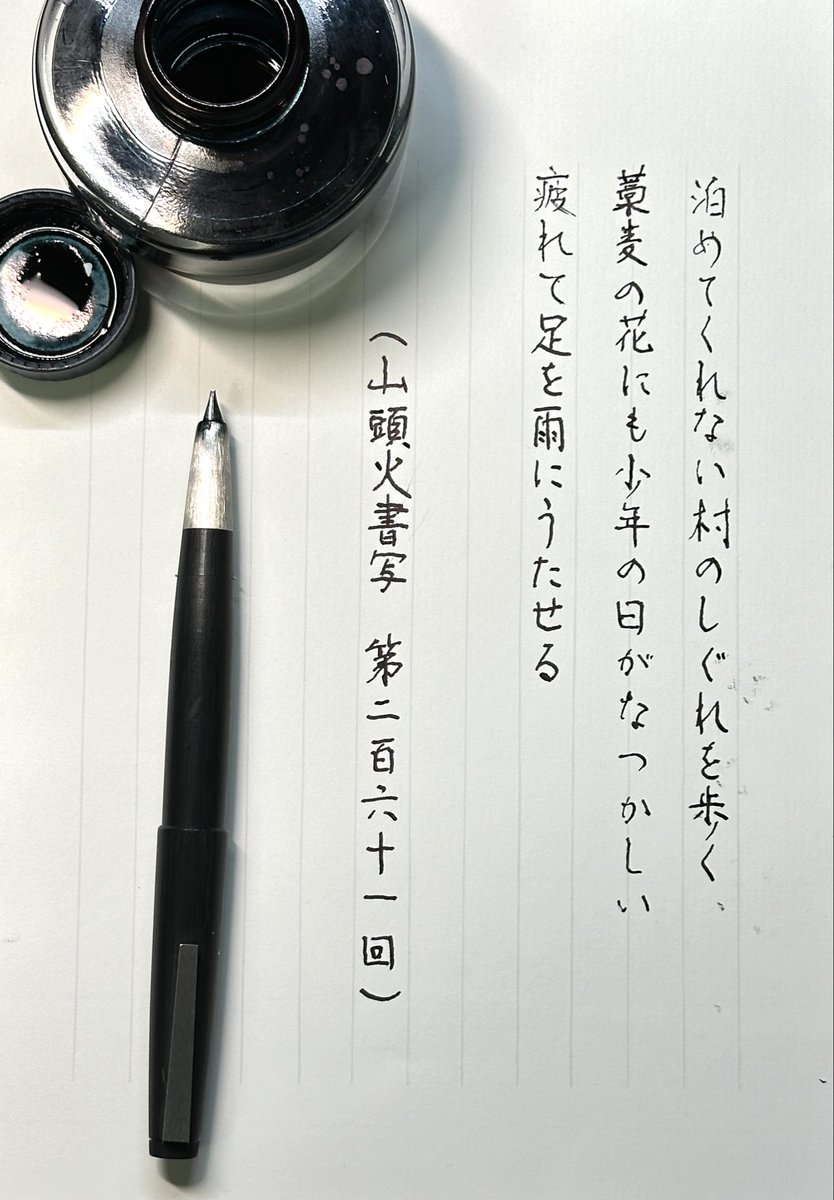 泊めてくれない村のしぐれを歩く
藁麦の花にも少年の日がなつかしい
疲れて足を雨にうたせる
（山頭火書写　第二百六十一回）